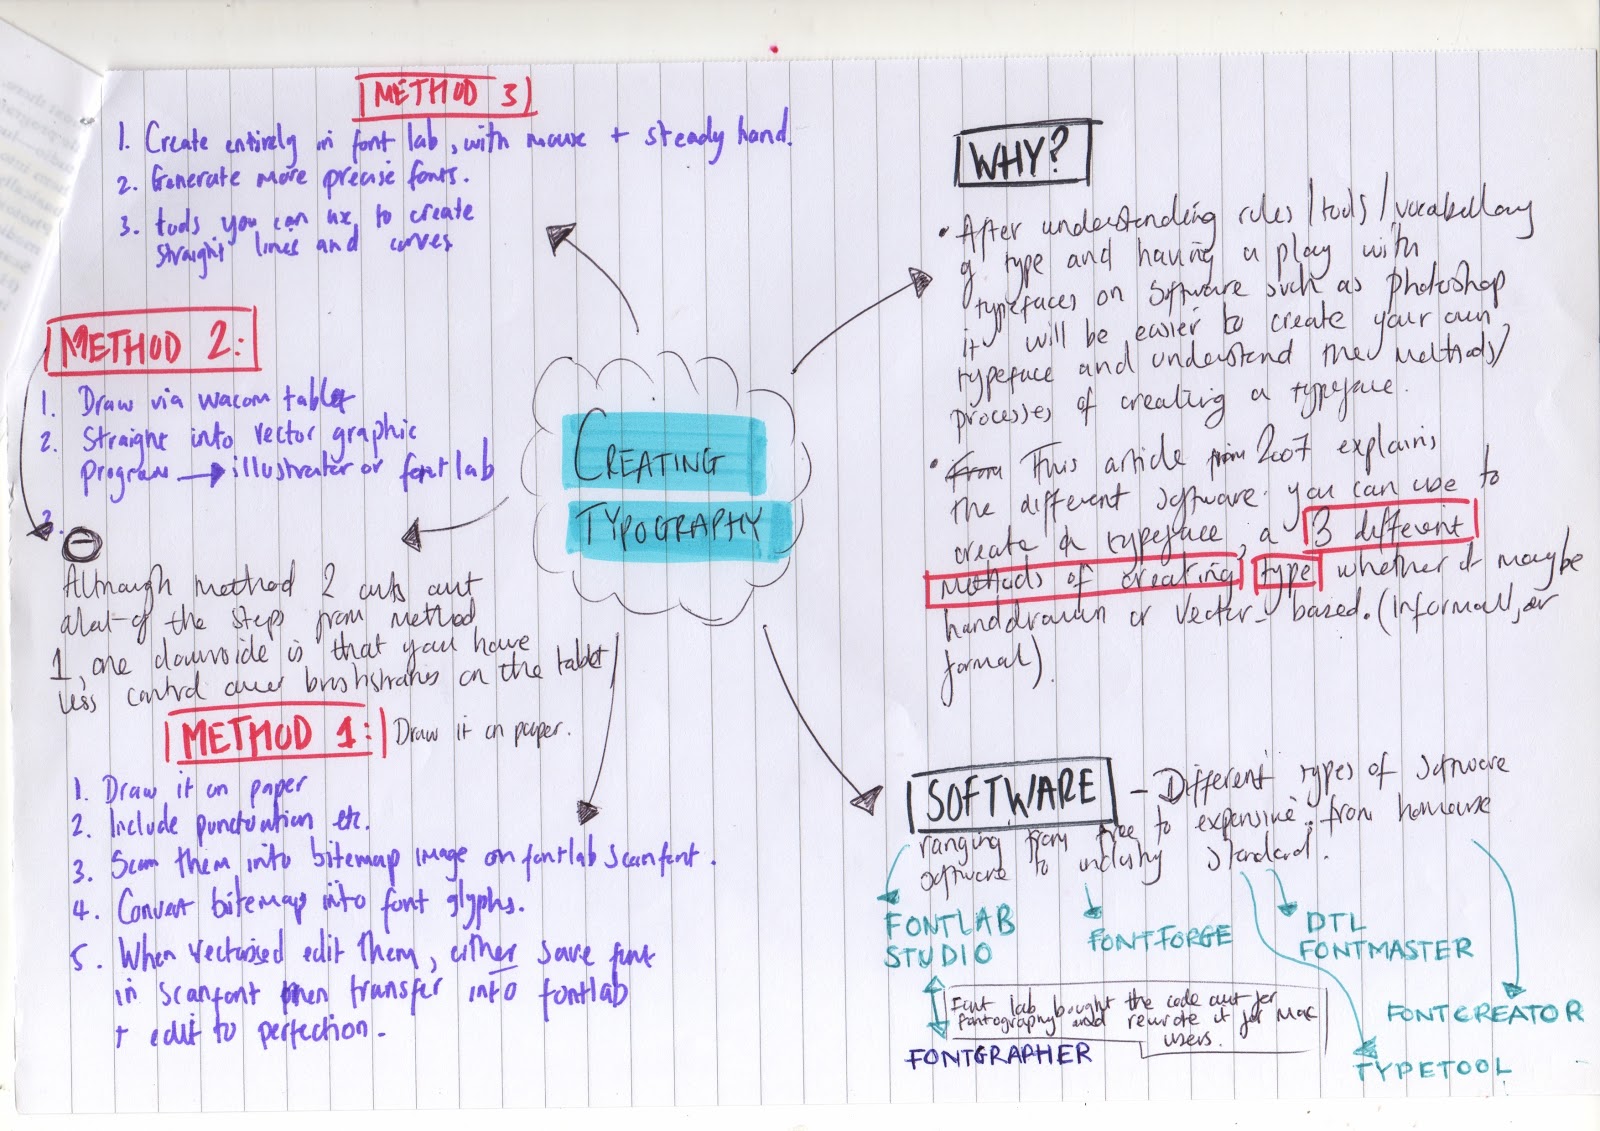 METHOD 3
1. Create entirely in font lab, with mouse + steady hand.
2. Generate more precise fonts.
3. tools you can use to create
straight lines and curves
METHOD 2:
1. Draw via wacom tablet
2. Straight into vector graphic
program → illustrator or fontlab
3.
Although method 2 cuts out
alot of the steps from method
1, one downside is that you have
less control over brushstrokes on the tablet
METHOD 1: Draw it on paper.
1. Draw it on paper
2. Include punctuation etc.
3. Scan them into bitemap image on fontlab scanfont.
4. Convert bitemap into font glyphs.
5. When vectorised edit them, either save font
in scanfont then transfer into fontlab
+ edit to perfection.
CREATING
TYPOGRAPHY
WHY?
• After understanding rules/tools/vocabullary
of type and having a play with
typefaces on software such as photoshop
it will be easier to create your own
typeface and understand the methods/
processes of creating a typeface.
• From This article from 2007 explains
the different software you can use to
create a typeface, a 3 different
methods of creating type whether it maybe
handdrawn or vector-based. (informal, or
formal).
SOFTWARE - Different types of software
ranging from free to expensive. from homeuse
software to industry standard.
FONTLAB
STUDIO
FONTFORGE
DTL
FONTMASTER
Font lab bought the code out for
fontography and rewrote it for Mac
users.
FONTGRAPHER
FONTCREATOR
TYPETOOL